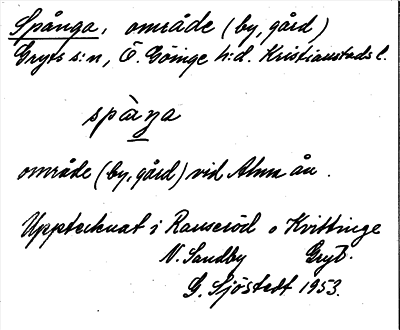 Spånga, område (by, gård)
Gryts s:n, Ö. Göinge h:d. Kristianstads l.
spàŋa
område (by, gård) vid Alma ån.
Upptecknat i Ranseröd o Kvittinge
N. Sandby Gryt.
G. Sjöstedt 1953.